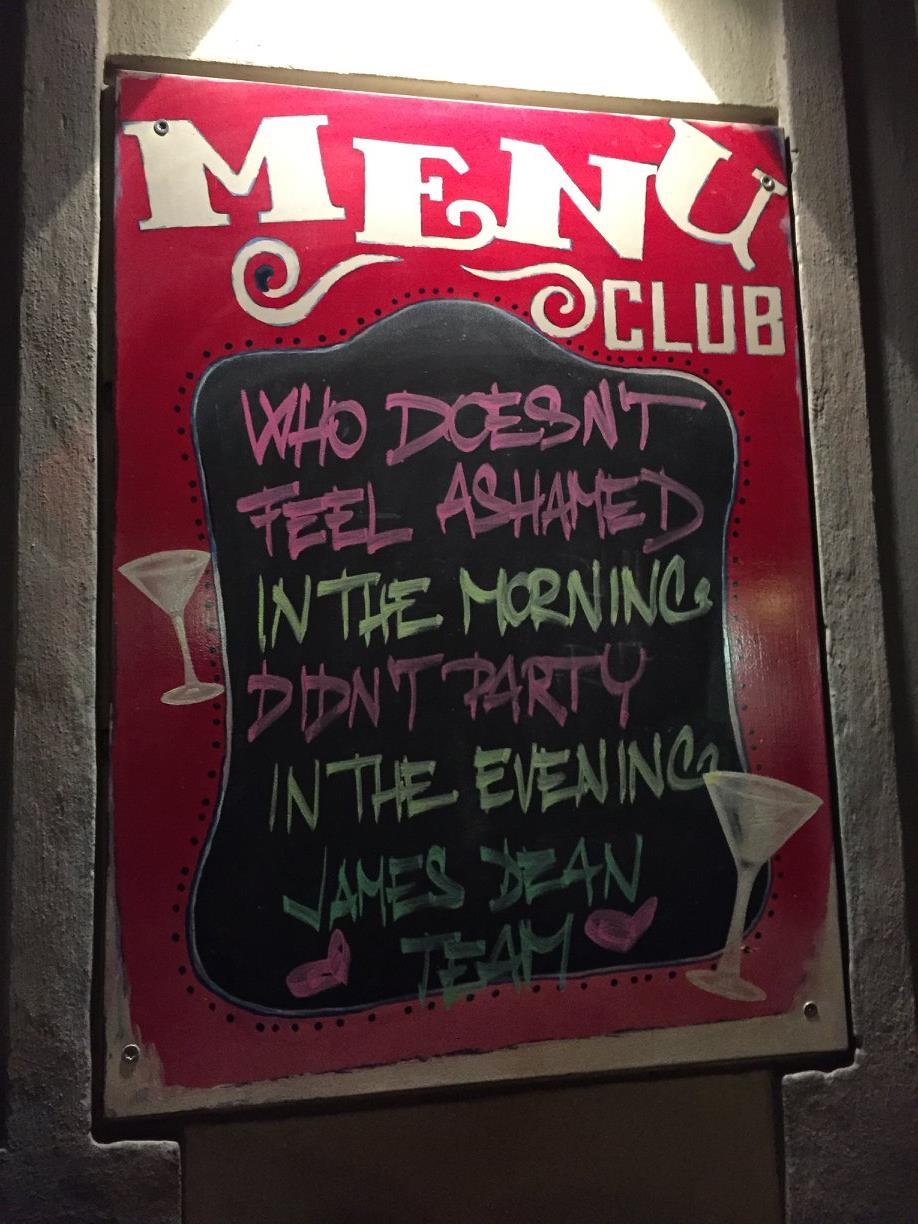 MENU
CLUB
WHO DOESN'T
FEEL ASHAMED
IN THE MORNING
DIDN'T PARTY
IN THE EVENING
JAMES DEAN
TEAM